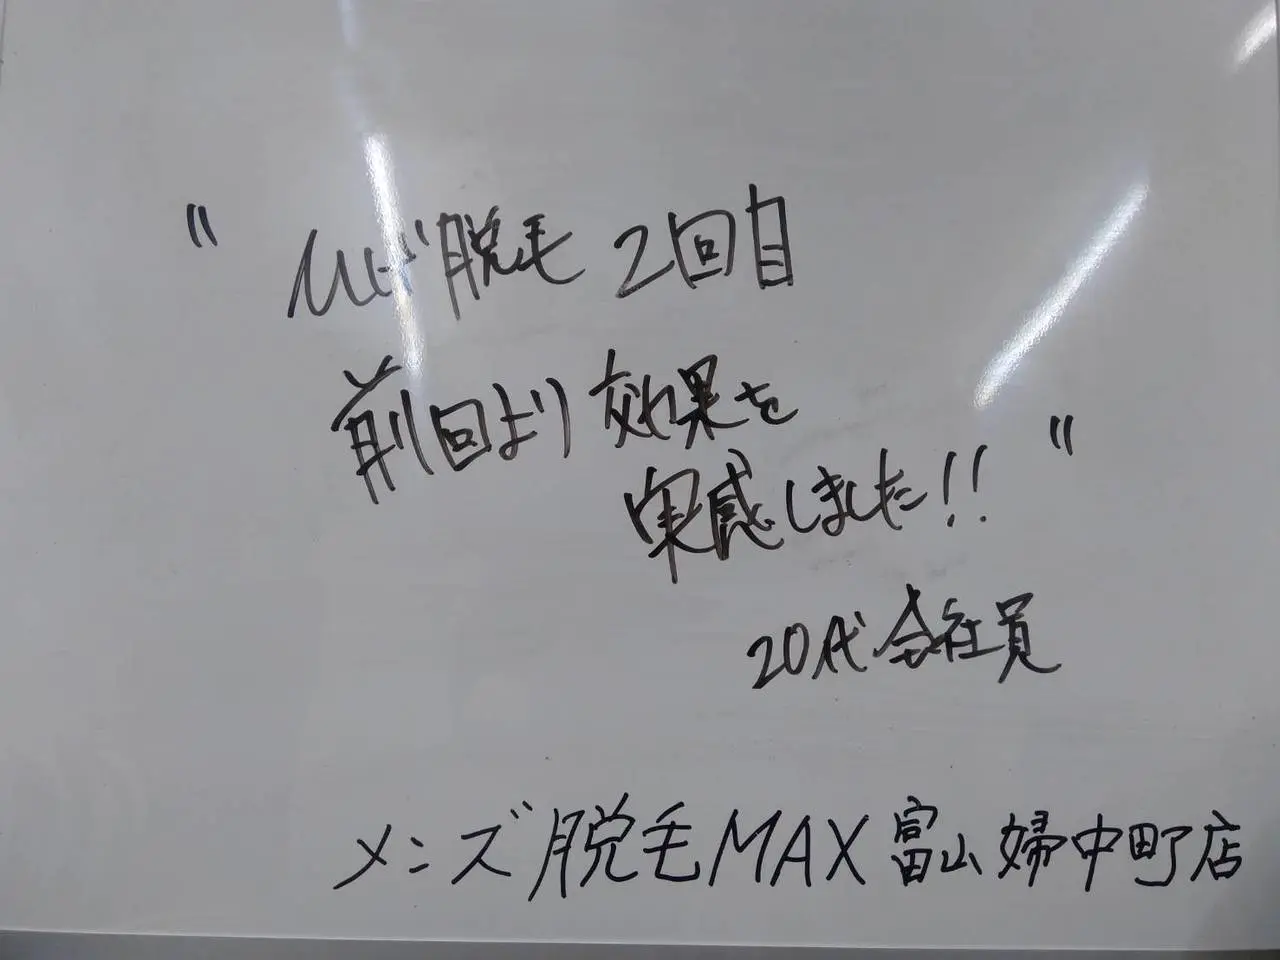 " ひげ脱毛 2回目
前回より 効果を
実感しました!! "
20代 会社員
メンズ脱毛MAX富山婦中町店